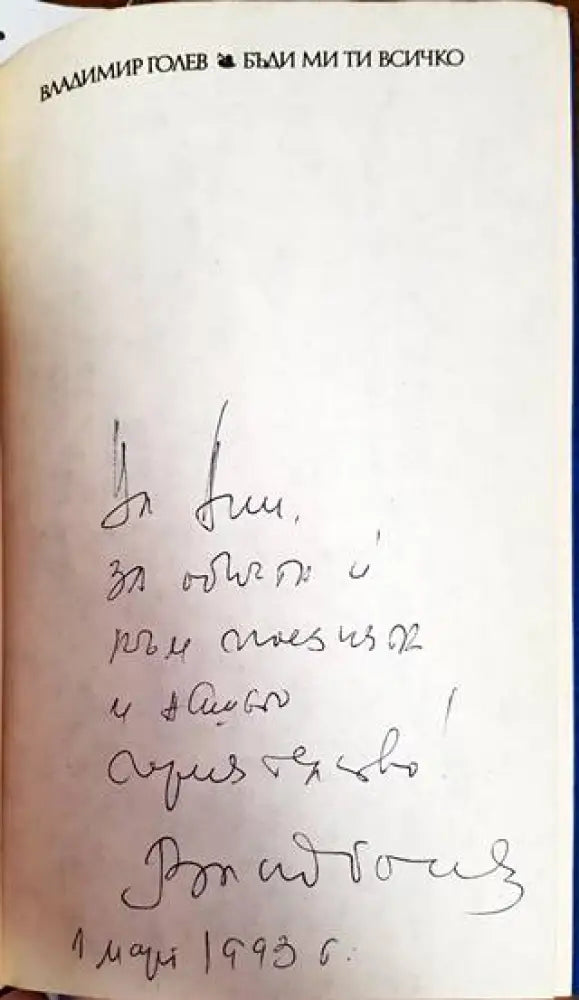 ВЛАДИМИР ГОЛЕВ БЪДИ МИ ТИ ВСИЧКО
На Ани,
за обичта ѝ
към поезията
и нашето
приятелство!
Влад Голев
1 март 1993 г.